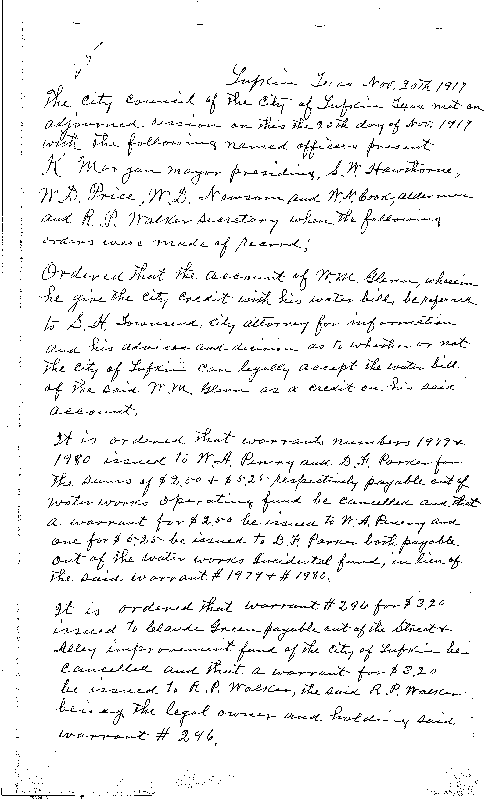 Lufkin Texas Nov. 20th 1917
The City Council of the City of Lufkin Texas met on
adjourned session on this the 20th day of Nov. 1917
with the following named officers present
K Morgan mayor presiding, S.W. Hawthorne,
W.D. Price, W.D. Newsom and W.N. Cook, aldermen
and R.P. Walker Secretary when the following
orders were made of record;
Ordered that the account of W.M. Glenn, wherein
he give the City Credit with his water bill, be referred
to S.H. Townsend, City attorney for information
and his advices and decision as to whether or not
the City of Lufkin can legally accept the water bill
of the said W.M. Glenn as a credit on his said
account.
It is ordered that warrants numbers 1979 &
1980 issued to W.A. Penny and D.F. Parker for
the sums of $2.50 & $5.25 respectively payable out of
water works operating fund be cancelled and that
a warrant for $2.50 be issued to W.A. Penny and
one for $5.25 be issued to D.F. Parker both payable
out of the water works Incidental fund, in lieu of
the said warrant #1979 & #1980.
It is ordered that warrant #296 for $3.20
issued to Claude Green payable out of the Street &
Alley improvement fund of the City of Lufkin be
Cancelled and that a warrant for $3.20
be issued to R.P. Walker, the said R.P. Walker
being the legal owner and holding said
warrant #296.